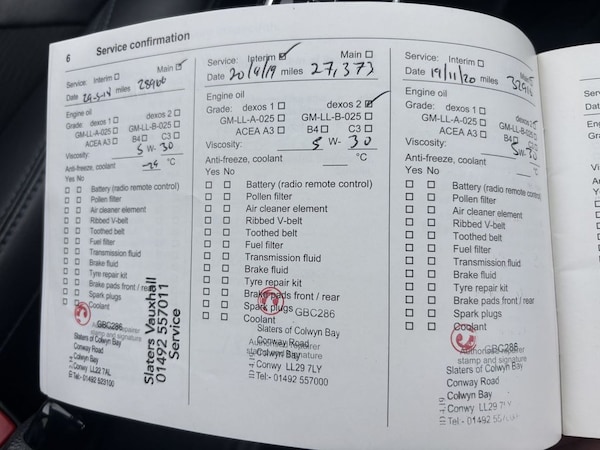 6 Service confirmation
Service: Interim Main
Date miles
Engine oil
Grade: dexos 1 dexos 2
GM-LL-A-025 GM-LL-B-025
ACEA A3 B4 C3
Viscosity: 5 W- 30
Anti-freeze, coolant °C
Yes No
Battery (radio remote control)
Pollen filter
Air cleaner element
Ribbed V-belt
Toothed belt
Fuel filter
Transmission fluid
Brake fluid
Tyre repair kit
Brake pads front / rear
Spark plugs
Coolant
GBC286
Authorised repairer
stamp and signature
Slaters of Colwyn Bay
Conway Road
Colwyn Bay
Conwy LL22 7AL
Tel:- 01492 523100
Slaters Vauxhall
01492 557011
Service
Service: Interim Main
Date 20/4/19 miles 27,373
Engine oil
Grade: dexos 1 dexos 2
GM-LL-A-025 GM-LL-B-025
ACEA A3 B4 C3
Viscosity: 5 W- 30
Anti-freeze, coolant °C
Yes No
Battery (radio remote control)
Pollen filter
Air cleaner element
Ribbed V-belt
Toothed belt
Fuel filter
Transmission fluid
Brake fluid
Tyre repair kit
Brake pads front / rear
Spark plugs
Coolant
GBC286
Authorised repairer
stamp and signature
Slaters of Colwyn Bay
Conway Road
Colwyn Bay
Conwy LL29 7LY
Tel:- 01492 557000
Service: Interim Main
Date 19/11/20 miles
Engine oil
Grade: dexos 1 dexos 2
GM-LL-A-025 GM-LL-B-025
ACEA A3 B4 C3
Viscosity: 5W-30
Anti-freeze, coolant °C
Yes No
Battery (radio remote control)
Pollen filter
Air cleaner element
Ribbed V-belt
Toothed belt
Fuel filter
Transmission fluid
Brake fluid
Tyre repair kit
Brake pads front / rear
Spark plugs
Coolant
GBC286
Authorised repairer
stamp and signature
Slaters of Colwyn Bay
Conway Road
Colwyn Bay
Conwy LL29 7LY
Tel:- 01492